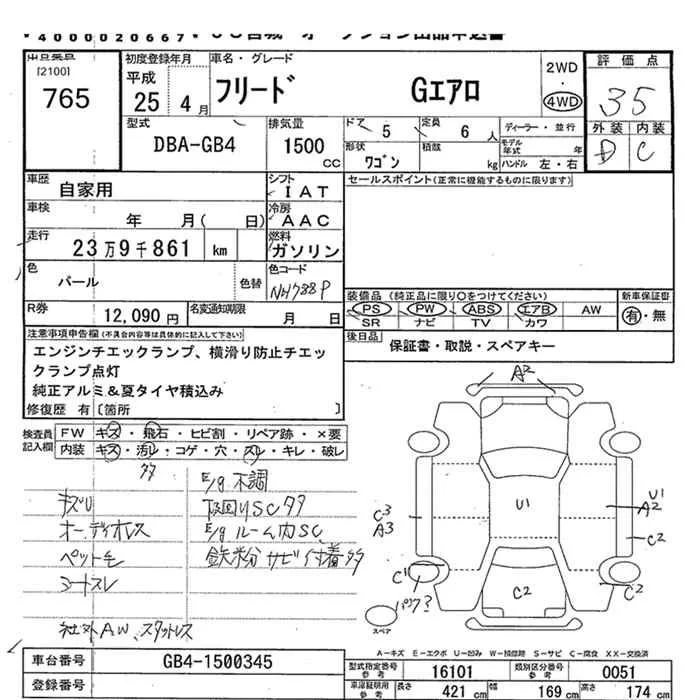 40000020667
出品票
[2100]
765
初度登録年月
平成
25 4月
車名・グレード
フリード Gエアロ
2WD
・
4WD
評価点
35
外装 内装
D C
型式
DBA-GB4
排気量
1500
CC
ドア 5
定員 6 人
ディーラー・並行
形状 ワゴン
積載 kg
モデル年式 年
ハンドル 左・右
車歴
自家用
シフト
IAT
セールスポイント(正常に機能するものに限ります)
車検
年 月( 日)
冷房
AAC
走行
23万9千861 km
燃料
ガソリン
色
パール
色替
色コード
NH788P
装備品 (純正品に限り○をつけてください)
PS PW ABS エアB AW
SR ナビ TV カワ
新車保証書
有・無
R券
12,090円
名変通知期限
月 日
後日品
保証書・取説・スペアキー
注意事項申告欄(不具合内容等は具体的に記入して下さい)
エンジンチエックランプ、横滑り防止チエッ
クランプ点灯
純正アルミ&夏タイヤ積込み
修復歴 有〔箇所 〕
検査員
記入欄
FW キズ・飛石・ヒビ割・リペア跡・×要
内装 キズ・汚レ・コゲ・穴・スレ・キレ・破レ
タタ
E/g 不調
キズU
下回りSCタタ
オーディオレス
E/g ルーム内SC
ペット毛
鉄粉サビ付着タタ
シートスレ
社外AW、スタットレス
A2
U1
C3
A3
U1
A2
C2
C1
パンク?
C2
C2
スペア
A-キズ E-エクボ U-凹み W-補修跡 S-サビ C-腐食 XX-交換済
車台番号
GB4-1500345
登録番号
型式指定番号
参考
16101
類別区分番号
参考
0051
車庫証明用
参考
長さ 421 cm
幅 169 cm
高さ 174 cm